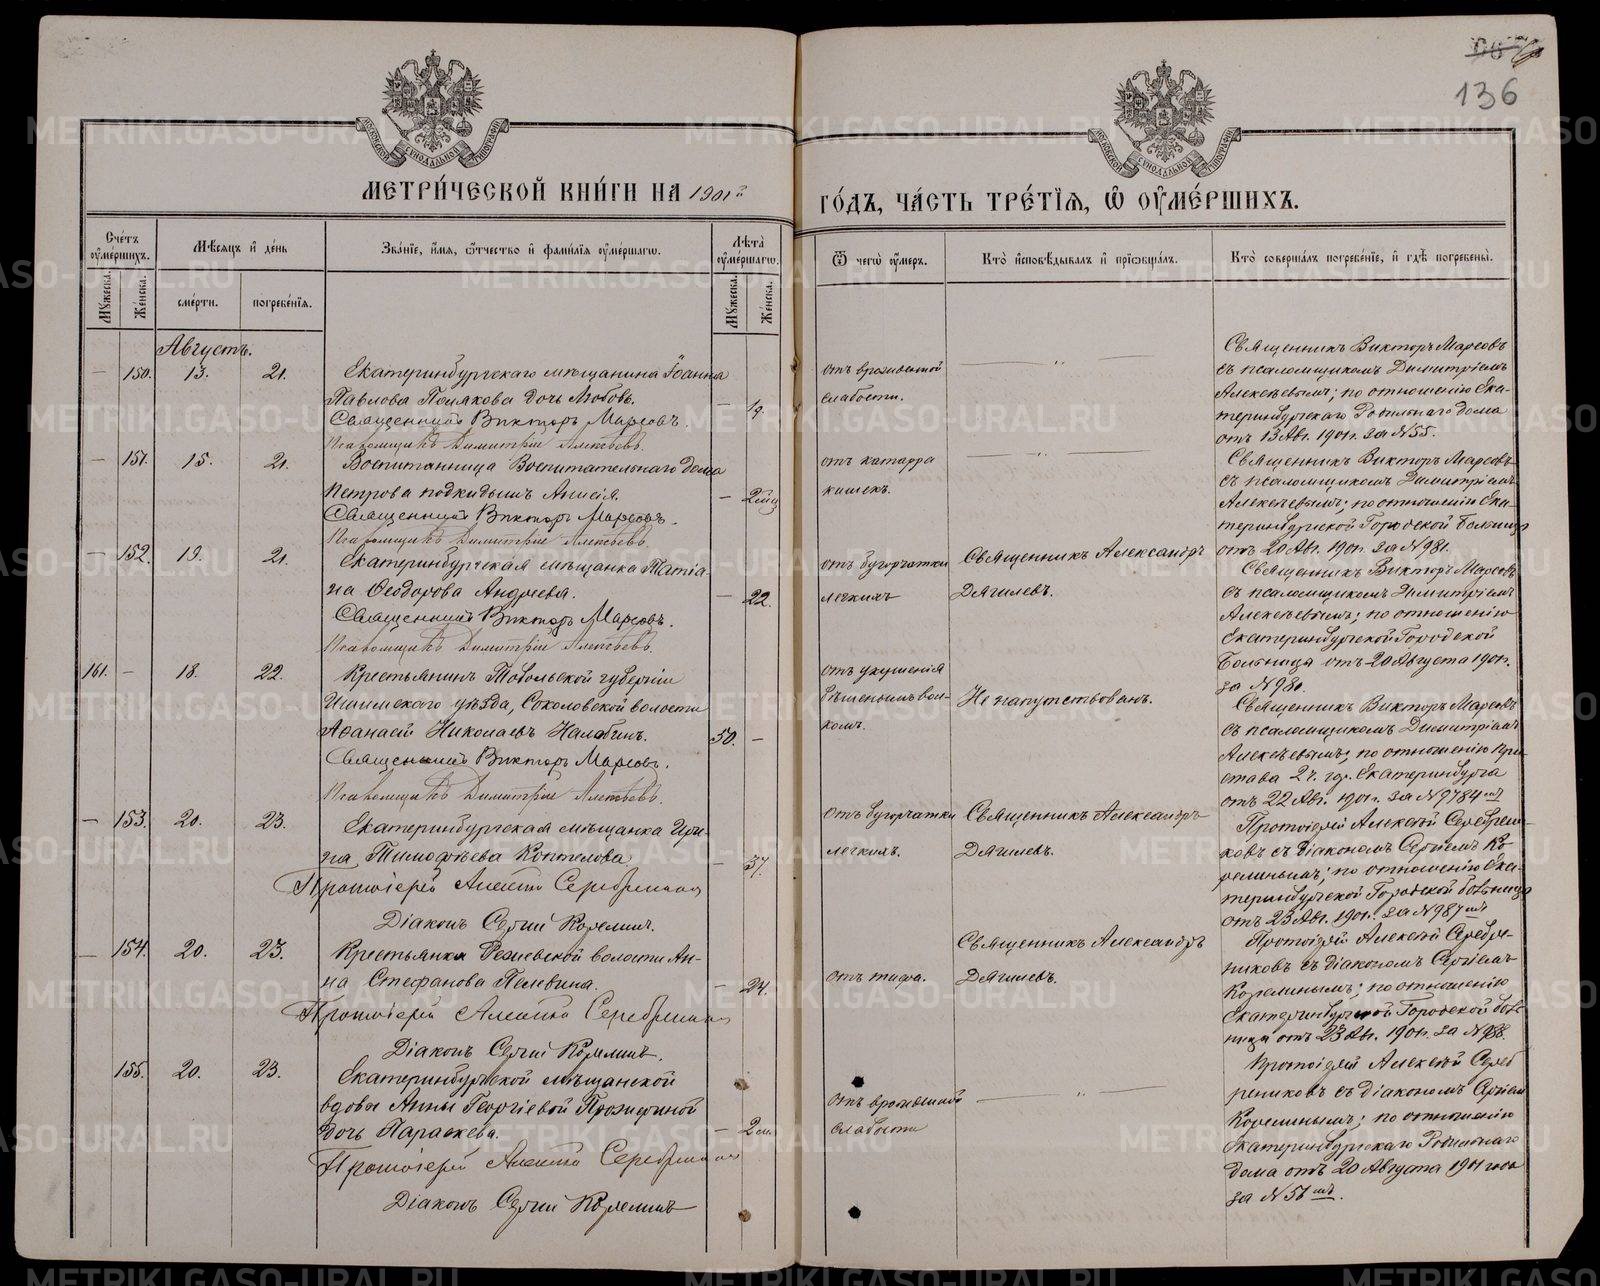 136
МОСКОВСКОЙ СѴНОДАЛЬНОЙ ТИПОГРАФІИ
МОСКОВСКОЙ СѴНОДАЛЬНОЙ ТИПОГРАФІИ
МЕТРИ́ЧЕСКОЙ КНИ́ГИ НА 1901й
ГО́ДЪ, ЧА́СТЬ ТРЕ́ТІѦ, Ѿ ОУМЕ́РШИХЪ.
Сче́тъ оумершихъ.
Мужеска.
Женска.
Мѣсяцъ и де́нь
сме́рти.
погребе́нїѧ.
Зва́нїе, и́мѧ, ѻтчество и фами́лїѧ оуме́ршагѡ.
Лѣта̀ оуме́ршагѡ.
Мужеска.
Женска.
Ѿ чегѡ̀ оу́меръ.
Кто̀ и҆сповѣ́дывалъ и҆ прїѡбща́лъ.
Кто̀ соверша́лъ погребе́нїе, и҆ гдѣ̀ погребены̀.
Августъ.
— 150. 13. 21.
Екатеринбургскаго мѣщанина Іоанна
Павлова Полякова дочь Любовь.
— 1д.
Священникъ Викторъ Марсовъ.
Псаломщикъ Димитрій Алексѣевъ.
отъ врожденной
слабости.
— „ —
Священникъ Викторъ Марсовъ
съ псаломщикомъ Димитріемъ
Алексѣевымъ; по отношенію Ека-
теринбургскаго Родильнаго дома
отъ 13 Авг. 1901г. за №55.
— 151. 15. 21.
Воспитанница Воспитательнаго дома
Петрова подкидышъ Анисія.
— 2мц
Священникъ Викторъ Марсовъ.
Псаломщикъ Димитрій Алексѣевъ.
отъ катарра
кишекъ.
— „ —
Священникъ Викторъ Марсовъ
съ псаломщикомъ Димитріемъ
Алексѣевымъ; по отношенію Ека-
теринбургской Городской Больницы
отъ 20 Авг. 1901г. за №981.
— 152. 19. 21.
Екатеринбургская мѣщанка Татіа-
на Ѳеодорова Андреева.
— 22.
Священникъ Викторъ Марсовъ.
Псаломщикъ Димитрій Алексѣевъ.
отъ бугорчатки
легкихъ
Священникъ Александръ
Дягилевъ.
Священникъ Викторъ Марсовъ
съ псаломщикомъ Димитріемъ
Алексѣевымъ; по отношенію
Екатеринбургской Городской
Больницы отъ 20 Августа 1901г.
за №980.
161. — 18. 22.
Крестьянинъ Тобольской губерніи
Ишимскаго уѣзда, Соколовской волости
Аѳанасій Николаевъ Налобинъ.
50. —
Священникъ Викторъ Марсовъ.
Псаломщикъ Димитрій Алексѣевъ.
отъ укушенія
бѣшенымъ вол-
комъ.
Не напутствованъ.
Священникъ Викторъ Марсовъ
съ псаломщикомъ Димитріемъ
Алексѣевымъ; по отношенію при-
става 2 ч. гор. Екатеринбурга
отъ 22 Авг. 1901г. за №9784мъ
— 153. 20. 23.
Екатеринбургская мѣщанка Ири-
на Тимоѳеева Коптелова
— 37.
Протоіерей Алексѣй Серебренниковъ
Діаконъ Сергій Корелинъ.
отъ бугорчатки
легкихъ.
Священникъ Александръ
Дягилевъ.
Протоіерей Алексѣй Серебренни-
ковъ съ діакономъ Сергіемъ Ко-
релинымъ; по отношенію Ека-
теринбургской Городской больницы
отъ 23 Авг. 1901г. за №987мъ
— 154. 20. 23.
Крестьянка Режевской волости Ан-
на Стефанова Пелевина.
— 24.
Протоіерей Алексѣй Серебренниковъ
Діаконъ Сергій Корелинъ.
отъ тифа.
Священникъ Александръ
Дягилевъ.
Протоіерей Алексѣй Серебре-
никовъ съ діакономъ Сергіемъ
Корелинымъ; по отношенію
Екатеринбургской Городской боль-
ницы отъ 23 Авг. 1901г. за №988.
155. 20. 23.
Екатеринбургской мѣщанской
вдовы Анны Георгіевой
дочь Параскева.
Протоіерей Алексѣй Серебренниковъ
Діаконъ Сергій Корелинъ
отъ врожденной
слабости
— „ —
Протоіерей Алексѣй Сереб
рениковъ съ діакономъ Сергіем
Корелинымъ; по отношенію
Екатеринбургскаго Родильнаго
дома отъ 20 Августа 1901 года
за №57мъ.
METRIKI.GASO-URAL.RU